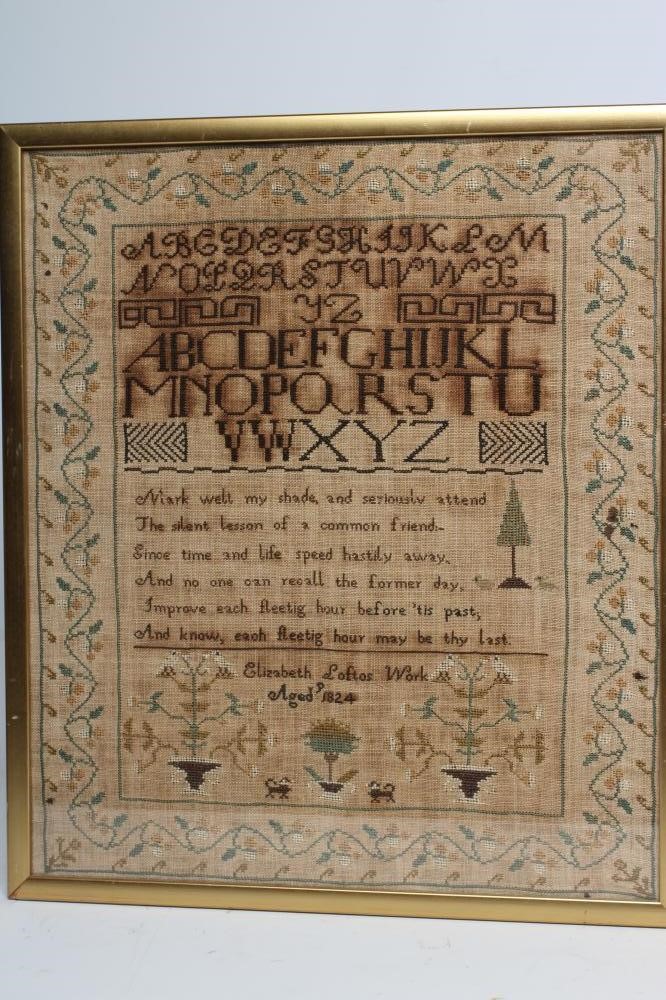 ABCDEFGHIJKLM
NOPQRSTUVWX
YZ
ABCDEFGHIJKL
MNOPQRSTU
VWXYZ
Mark well my shade, and seriously attend
The silent lesson of a common friend:-
Since time and life speed hastily away,
And no one can recall the former day,
Improve each fleetig hour before 'tis past,
And know, each fleetig hour may be thy last.
Elizabeth Loftos Work
Aged 9 1824